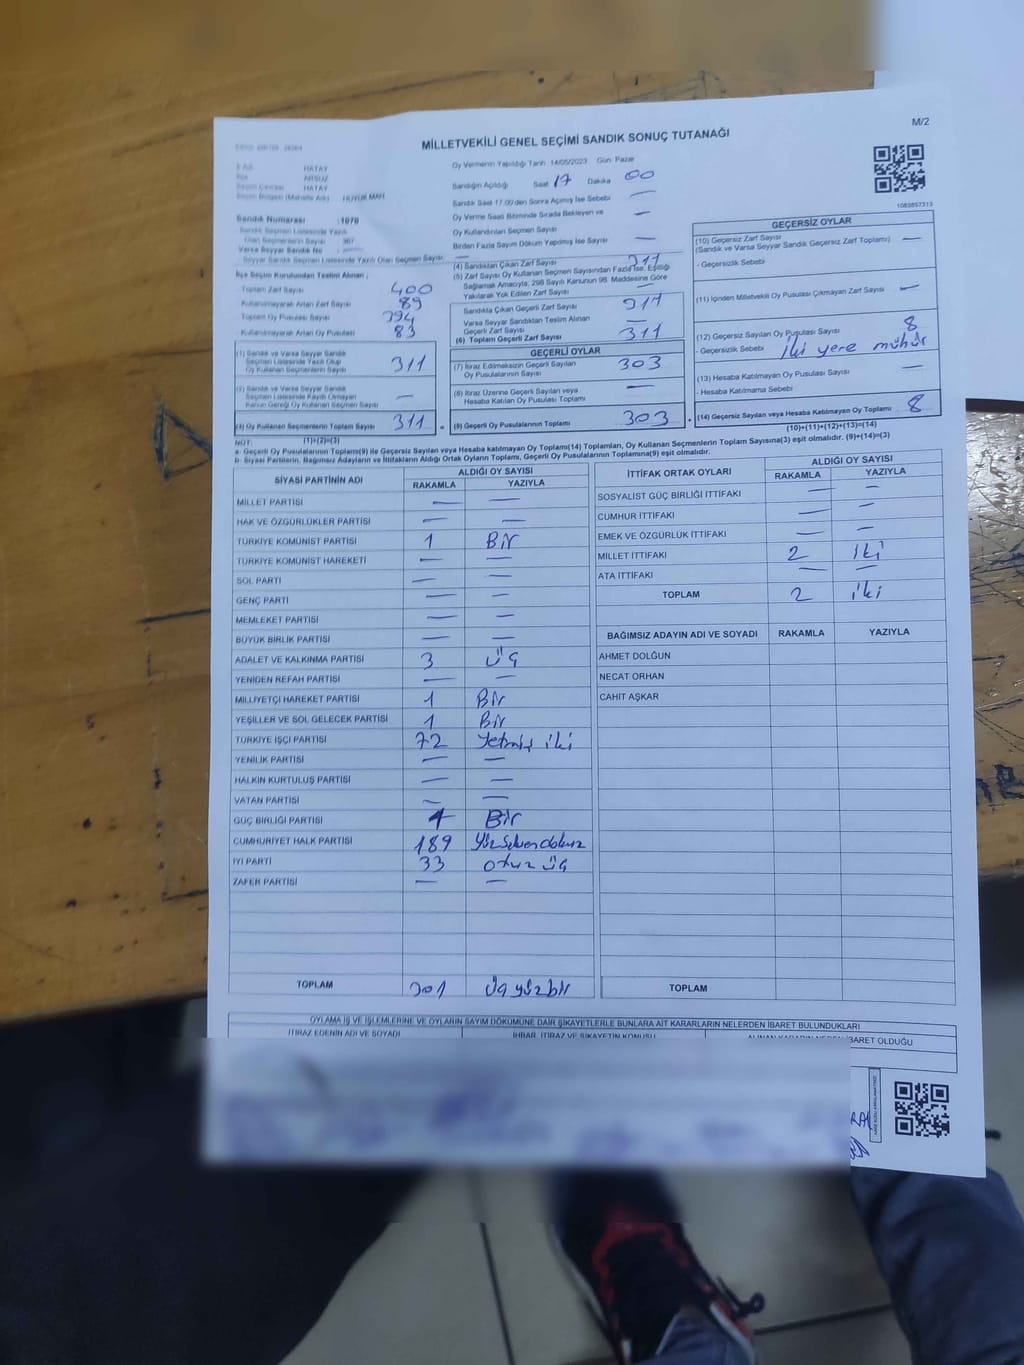 M/2
MİLLETVEKİLİ GENEL SEÇİMİ SANDIK SONUÇ TUTANAĞI
HATAY
ARSUZ
HATAY
HÜYÜK MAH
Sandık Numarası : 1070
Sandık Seçmen Listesinde Yazılı
Olan Seçmenlerin Sayısı : 367
Varsa Seyyar Sandık No :
Seyyar Sandık Seçmen Listesinde Yazılı Olan Seçmen Sayısı : —
Oy Vermenin Yapıldığı Tarih 14/05/2023 Gün: Pazar
Sandığın Açıldığı Saat 17 Dakika 00
Sandık Saat 17:00'den Sonra Açılmış İse Sebebi —
Oy Verme Saati Bitiminde Sırada Bekleyen ve
Oy Kullandırılan Seçmen Sayısı —
Birden Fazla Sayım Döküm Yapılmış İse Sayısı —
1083857313
İlçe Seçim Kurulundan Teslim Alınan ;
Toplam Zarf Sayısı 400
Kullanılmayarak Artan Zarf Sayısı 89
Toplam Oy Pusulası Sayısı 394
Kullanılmayarak Artan Oy Pusulası 83
(1) Sandık ve Varsa Seyyar Sandık
Seçmen Listesinde Yazılı Olup
Oy Kullanan Seçmenlerin Sayısı 311
(2) Sandık ve Varsa Seyyar Sandık
Seçmen Listesinde Kayıtlı Olmayan
Kanun Gereği Oy Kullanan Seçmen Sayısı —
(3) Oy Kullanan Seçmenlerin Toplam Sayısı 311
(1)+(2)=(3)
(4) Sandıktan Çıkan Zarf Sayısı 311
(5) Zarf Sayısı Oy Kullanan Seçmen Sayısından Fazla İse, Eşitliği
Sağlamak Amacıyla, 298 Sayılı Kanunun 98. Maddesine Göre
Yakılarak Yok Edilen Zarf Sayısı —
Sandıkta Çıkan Geçerli Zarf Sayısı 311
Varsa Seyyar Sandıktan Teslim Alınan
Geçerli Zarf Sayısı —
(6) Toplam Geçerli Zarf Sayısı 311
GEÇERLİ OYLAR
(7) İtiraz Edilmeksizin Geçerli Sayılan
Oy Pusulalarının Sayısı 303
(8) İtiraz Üzerine Geçerli Sayılan veya
Hesaba Katılan Oy Pusulası Toplamı —
(9) Geçerli Oy Pusulalarının Toplamı 303
GEÇERSİZ OYLAR
(10) Geçersiz Zarf Sayısı —
(Sandık ve Varsa Seyyar Sandık Geçersiz Zarf Toplamı)
- Geçersizlik Sebebi
(11) İçinden Milletvekili Oy Pusulası Çıkmayan Zarf Sayısı —
(12) Geçersiz Sayılan Oy Pusulası Sayısı 8
- Geçersizlik Sebebi iki yere mühür
(13) Hesaba Katılmayan Oy Pusulası Sayısı —
- Hesaba Katılmama Sebebi
(14) Geçersiz Sayılan veya Hesaba Katılmayan Oy Pusulası Toplamı 8
(10)+(11)+(12)+(13)=(14)
NOT:
a- Geçerli Oy Pusulalarının Toplamı(9) ile Geçersiz Sayılan veya Hesaba katılmayan Oy Toplamı(14) Toplamları, Oy Kullanan Seçmenlerin Toplam Sayısına(3) eşit olmalıdır. (9)+(14)=(3)
b- Siyasi Partilerin, Bağımsız Adayların ve İttifakların Aldığı Ortak Oyların Toplamı, Geçerli Oy Pusulalarının Toplamına(9) eşit olmalıdır.
SİYASİ PARTİNİN ADI ALDIĞI OY SAYISI
RAKAMLA YAZIYLA
MİLLET PARTİSİ — —
HAK VE ÖZGÜRLÜKLER PARTİSİ — —
TÜRKİYE KOMÜNİST PARTİSİ 1 Bir
TÜRKİYE KOMÜNİST HAREKETİ — —
SOL PARTİ — —
GENÇ PARTİ — —
MEMLEKET PARTİSİ — —
BÜYÜK BİRLİK PARTİSİ — —
ADALET VE KALKINMA PARTİSİ 3 Üç
YENİDEN REFAH PARTİSİ — —
MİLLİYETÇİ HAREKET PARTİSİ 1 Bir
YEŞİLLER VE SOL GELECEK PARTİSİ 1 Bir
TÜRKİYE İŞÇİ PARTİSİ 72 Yetmiş iki
YENİLİK PARTİSİ — —
HALKIN KURTULUŞ PARTİSİ — —
VATAN PARTİSİ — —
GÜÇ BİRLİĞİ PARTİSİ 1 Bir
CUMHURİYET HALK PARTİSİ 189 Yüzseksendokuz
İYİ PARTİ 33 otuz üç
ZAFER PARTİSİ — —
TOPLAM 301 Üçyüzbir
İTTİFAK ORTAK OYLARI ALDIĞI OY SAYISI
RAKAMLA YAZIYLA
SOSYALİST GÜÇ BİRLİĞİ İTTİFAKI — —
CUMHUR İTTİFAKI — —
EMEK VE ÖZGÜRLÜK İTTİFAKI — —
MİLLET İTTİFAKI 2 iki
ATA İTTİFAKI — —
TOPLAM 2 iki
BAĞIMSIZ ADAYIN ADI VE SOYADI RAKAMLA YAZIYLA
AHMET DOLĞUN
NECAT ORHAN
CAHİT AŞKAR
TOPLAM
OYLAMA İŞ VE İŞLEMLERİNE VE OYLARIN SAYIM DÖKÜMÜNE DAİR ŞİKAYETLERLE BUNLARA AİT KARARLARIN NELERDEN İBARET BULUNDUKLARI
İTİRAZ EDENİN ADI VE SOYADI İHBAR, İTİRAZ VE ŞİKAYETİN KONUSU ALINAN KARARIN NEDEN İBARET OLDUĞU